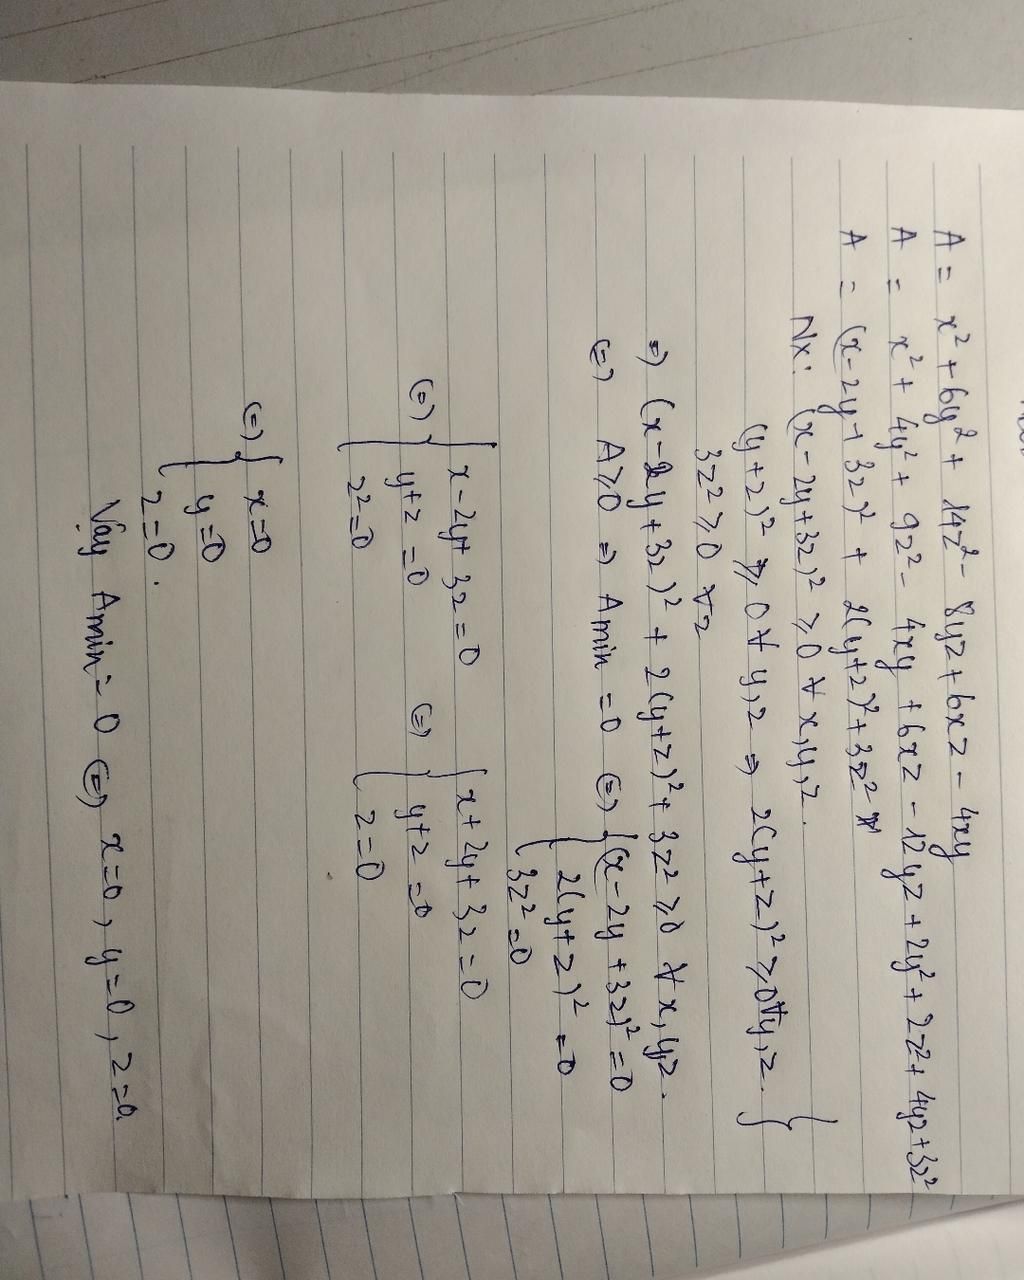 A = x² + 6y² + 14z² - 8yz + 6xz - 4xy
A = x² + 4y² + 9z² - 4xy + 6xz - 12yz + 2y² + 2z² + 4yz + 3z²
A = (x - 2y + 3z)² + 2(y+z)² + 3z²
Nx: (x - 2y + 3z)² ≥ 0 ∀ x, y, z.
(y + z)² ≥ 0 ∀ y, z ⇒ 2(y + z)² ≥ 0 ∀ y, z.
3z² ≥ 0 ∀ z
⇒ (x - 2y + 3z)² + 2(y+z)² + 3z² ≥ 0 ∀ x, y, z.
(=) A ≥ 0 ⇒ Amin = 0 (=) { (x - 2y + 3z)² = 0
2(y + z)² = 0
3z² = 0
(=) { x - 2y + 3z = 0 (=) { x + 2y + 3z = 0
y + z = 0 y + z = 0
z² = 0 z = 0
(=) { x = 0
y = 0
z = 0.
Vậy Amin = 0 (=) x = 0, y = 0, z = 0.